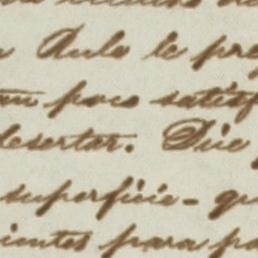 Aula le pre
tan poco satisf
desertar. Dije
superficie - qu
ientes para pa